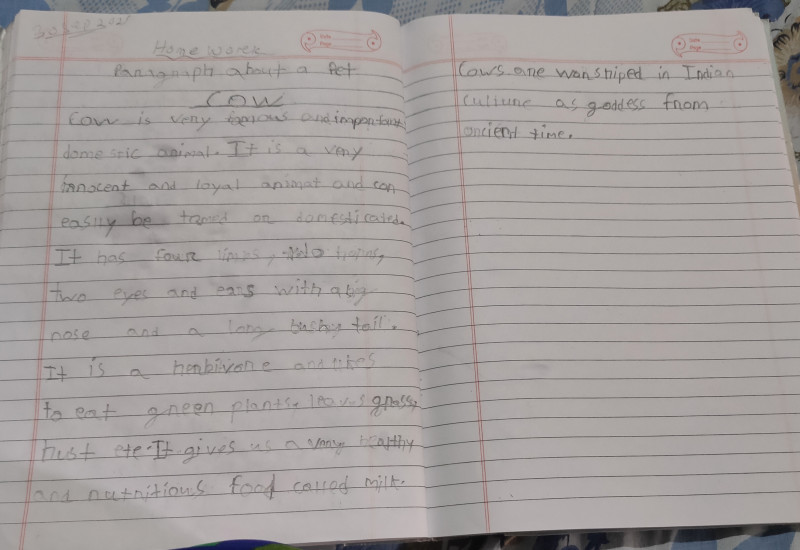 Home Work
Paragraph about a Pet
COW
Cow is very famous and important
domestic animal. It is a very
innocent and loyal animal and can
easily be tamed or domesticated.
It has four limbs, two horns,
two eyes and ears with a big
nose and a long bushy tail.
It is a herbivore and likes
to eat green plants, leaves grass,
etc. It gives us a very healthy
and nutnitious food called milk.
Date
Page
Date
Page
Cows are worshiped in Indian
culture as goddess from
ancient time.